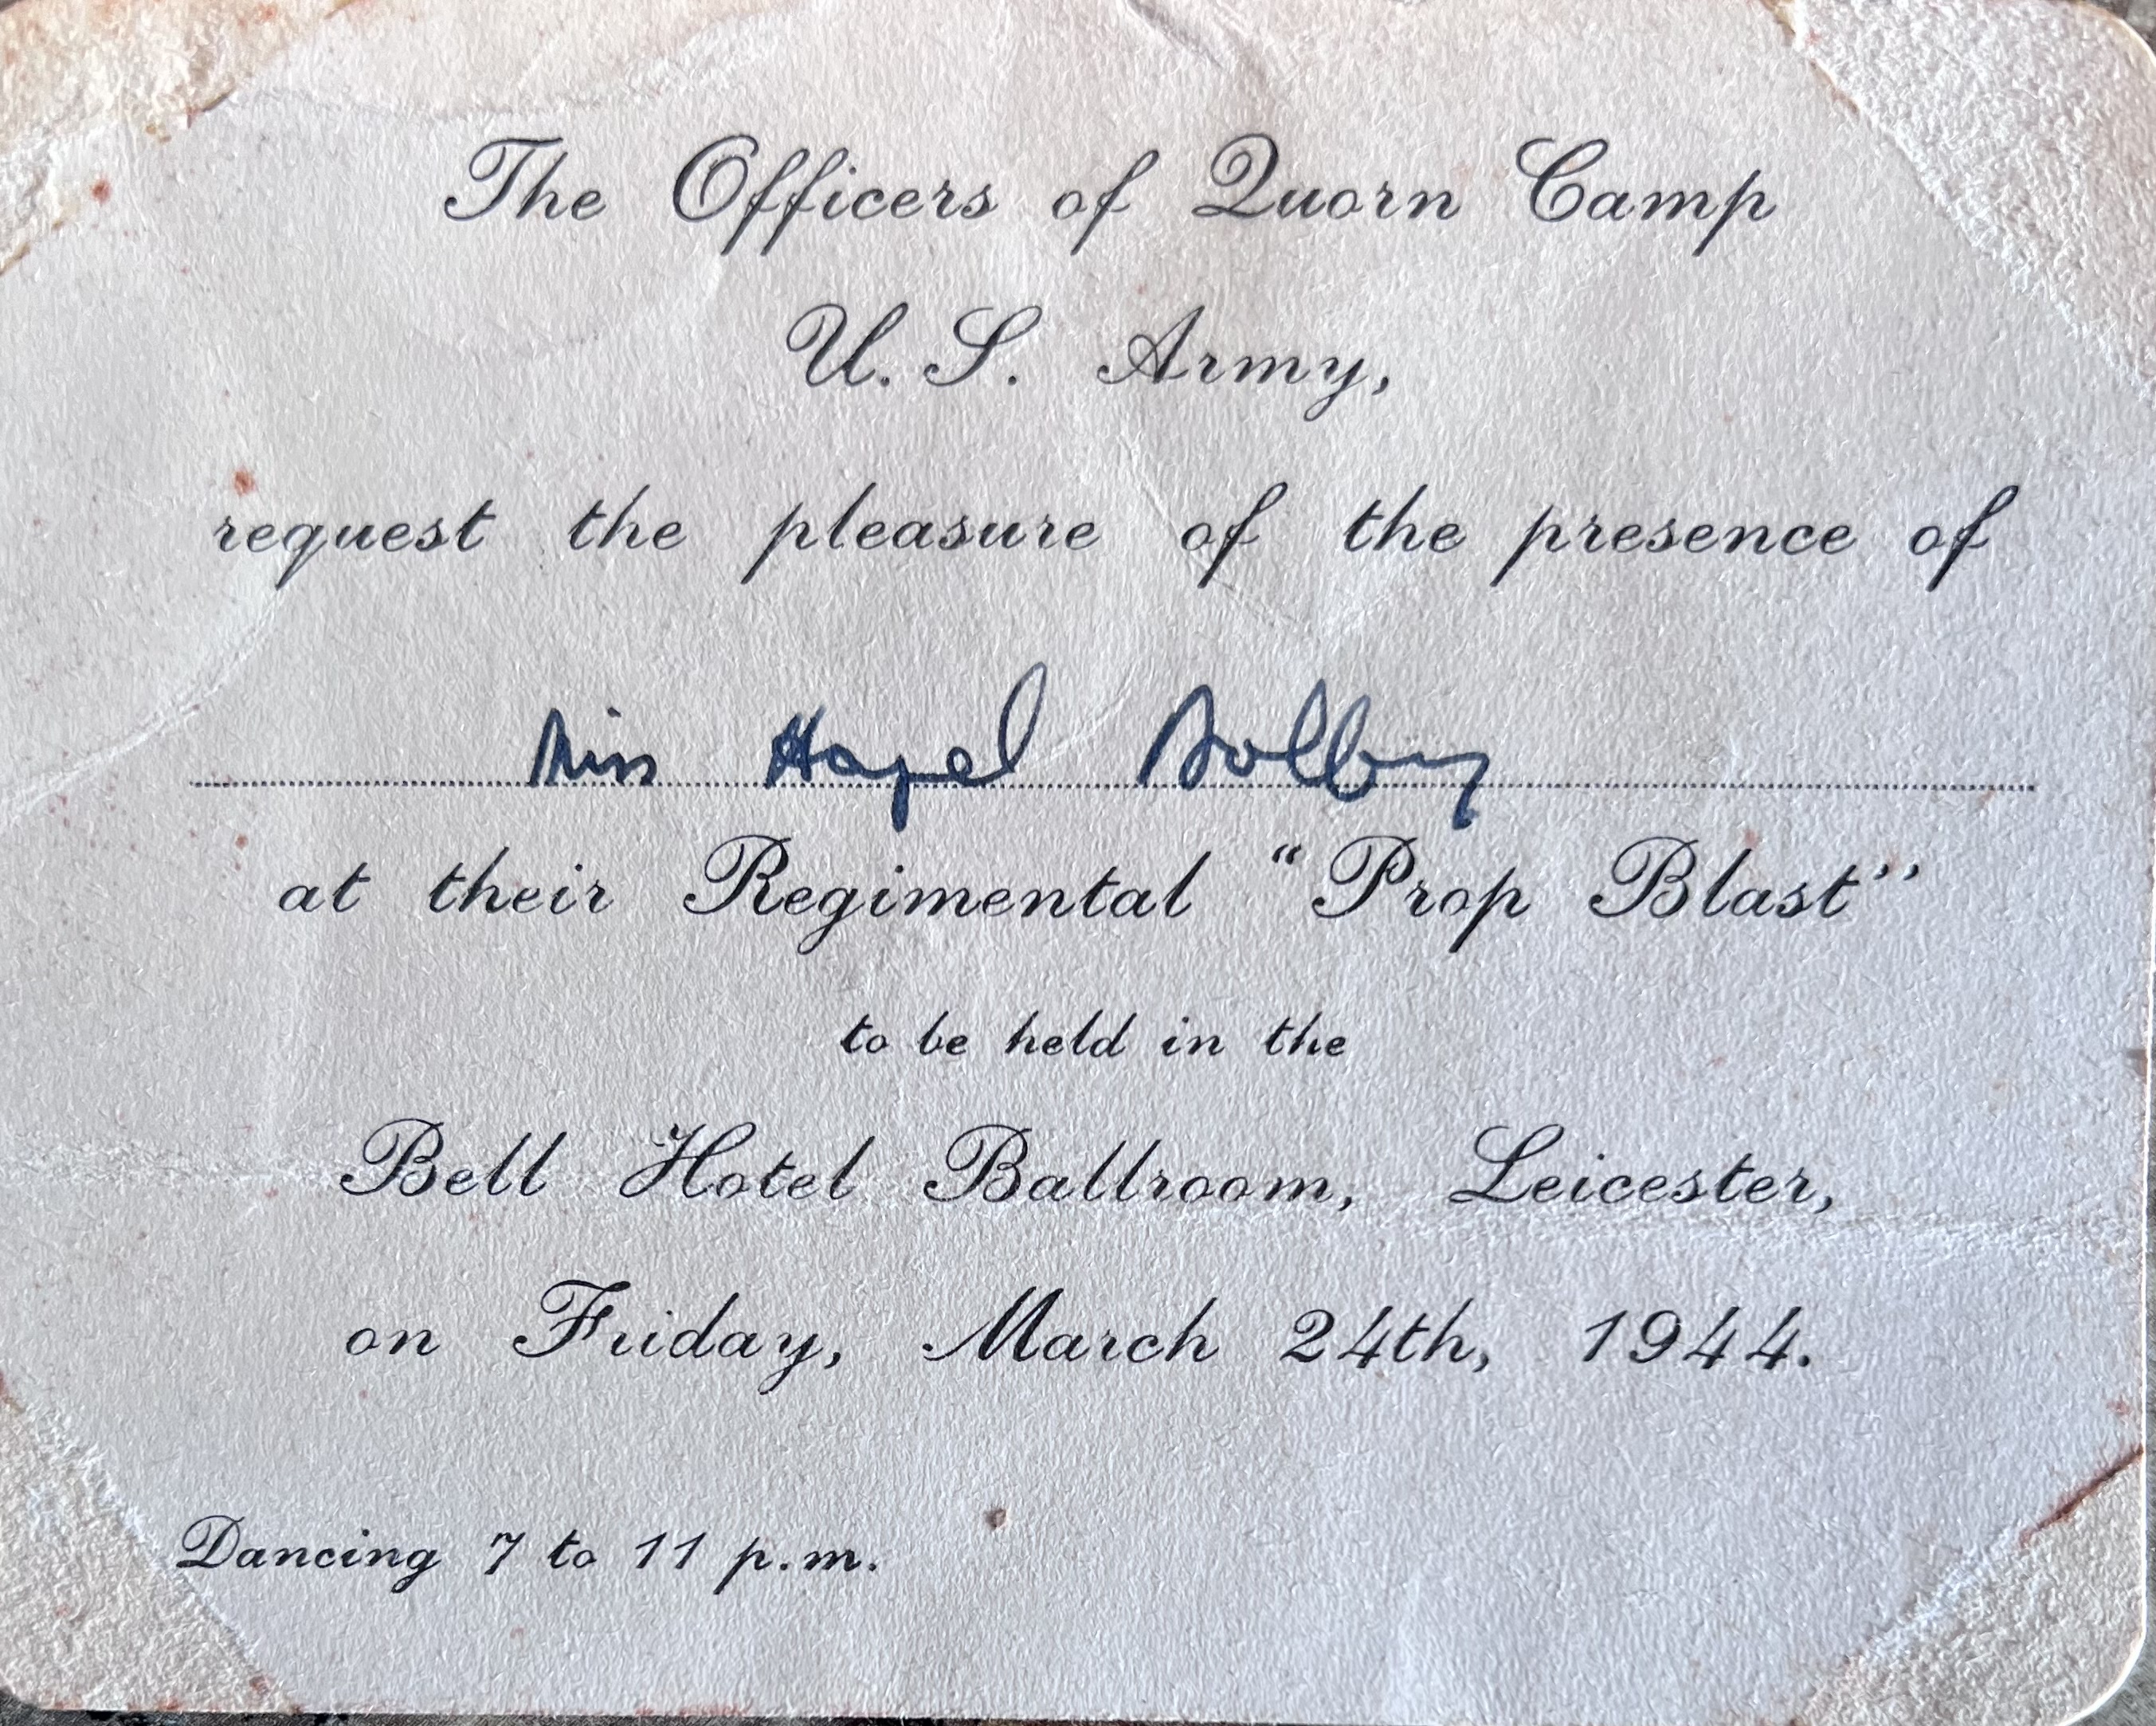 The Officers of Quorn Camp
U. S. Army,
request the pleasure of the presence of
Miss Hazel Dolby
at their Regimental “Prop Blast”
to be held in the
Bell Hotel Ballroom, Leicester,
on Friday, March 24th, 1944.
Dancing 7 to 11 p.m.